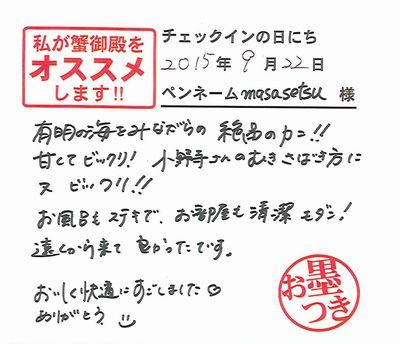 私が蟹御殿を
オススメ
します!!
チェックインの日にち
2015年9月22日
ペンネームmasasetsu様
有明の海をみながらの 絶品のカニ!!
甘くてビックリ! 小野寺さんのむきさばき方に
又 ビックリ!!
お風呂もステキで、お部屋も清潔モダン!
遠くから来て 良かったです。
おいしく快適にすごしました♡
ありがとう
お墨つき